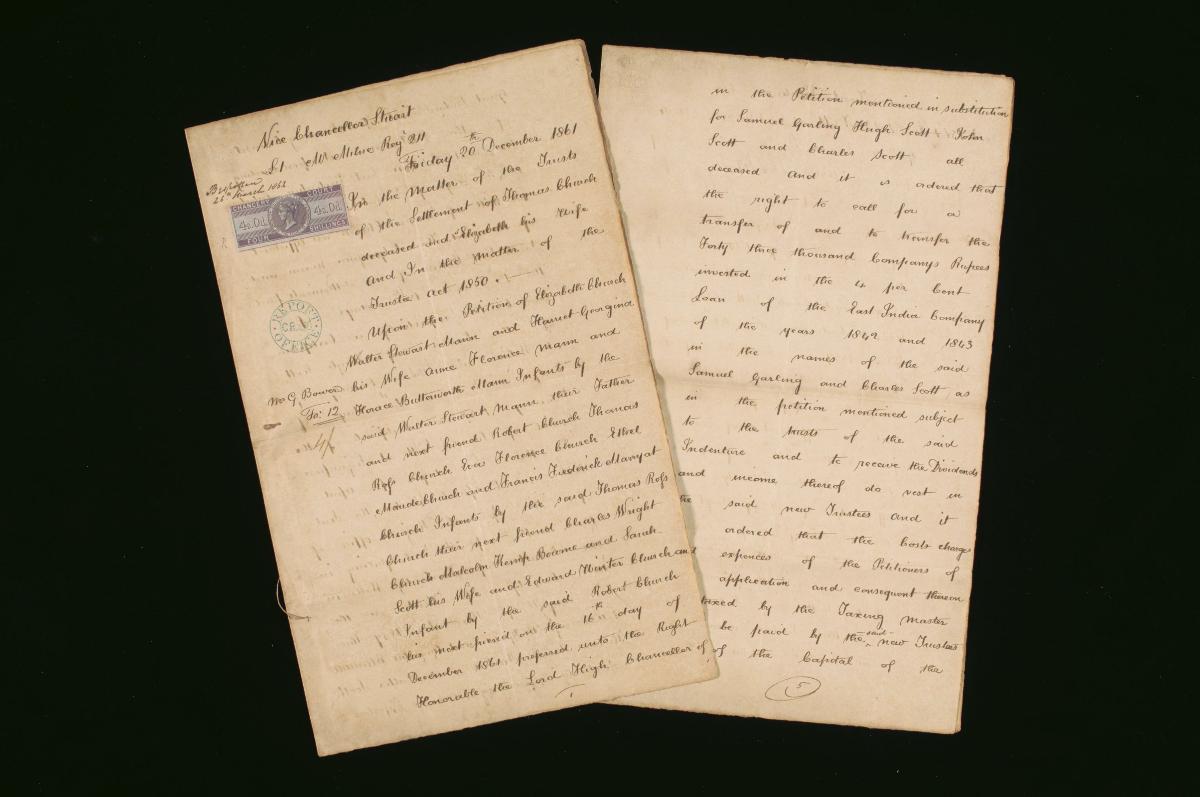 Vice Chancellor Stuart
Friday 20th December 1861
26th March 1862
CHANCERY COURT
4s.0d. 4s.0d.
FOUR SHILLINGS
In the Matter of the Trusts
of the Settlement of Thomas Church
deceased and Elizabeth his Wife
And In the Matter of the
Trustee Act 1850.
Upon the Petition of Elizabeth Church
REPORT OFFICE
Walter Stewart Mann and Harriet Georgina
Mr G Bower
his Wife Anne Florence Mann and
Fo: 12
Horace Butterworth Mann Infants by the
4/
said Walter Stewart Mann their Father
and next friend Robert Church Thomas
Ross Church Eva Florence Church Ethel
Maude Church and Francis Frederick Marryat
Church Infants by the said Thomas Ross
Church their next friend Charles Wright
Church Malcolm Kemp Bourne and Sarah
Scott his Wife and Edward Winter Church an
Infant by the said Robert Church
his next friend on the 16th day of
December 1861 preferred unto the Right
Honorable the Lord High Chancellor of
1
in the Petition mentioned in substitution
for Samuel Garling Hugh Scott John
Scott and Charles Scott all
deceased And it is ordered that
the right to call for a
transfer of and to transfer the
Forty three thousand Companys Rupees
invested in the 4 per Cent
Loan of the East India Company
of the years 1842 and 1843
in the names of the said
Samuel Garling and Charles Scott as
in the petition mentioned subject
to the trusts of the said
Indenture and to receive the Dividends
and income thereof do vest in
the said new Trustees And it
ordered that the Costs charge
and expences of the Petitioners of
application and consequent thereon
taxed by the Taxing Master
be paid by the said new Trustees
of the Capital of the
5